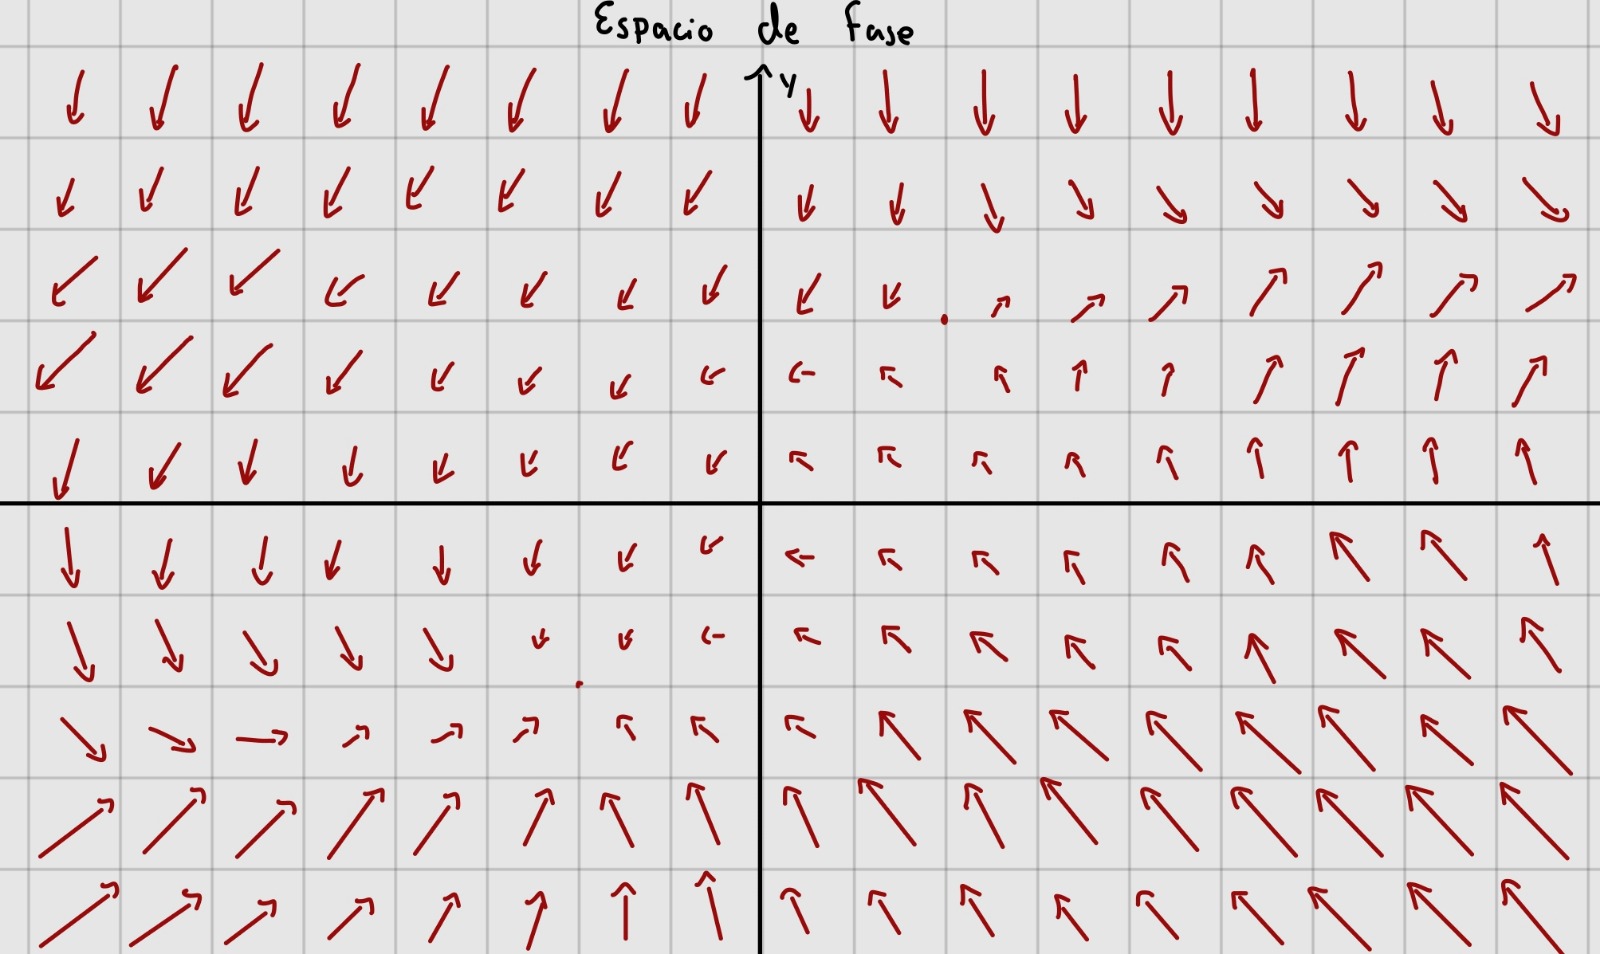 Espacio de fase
y